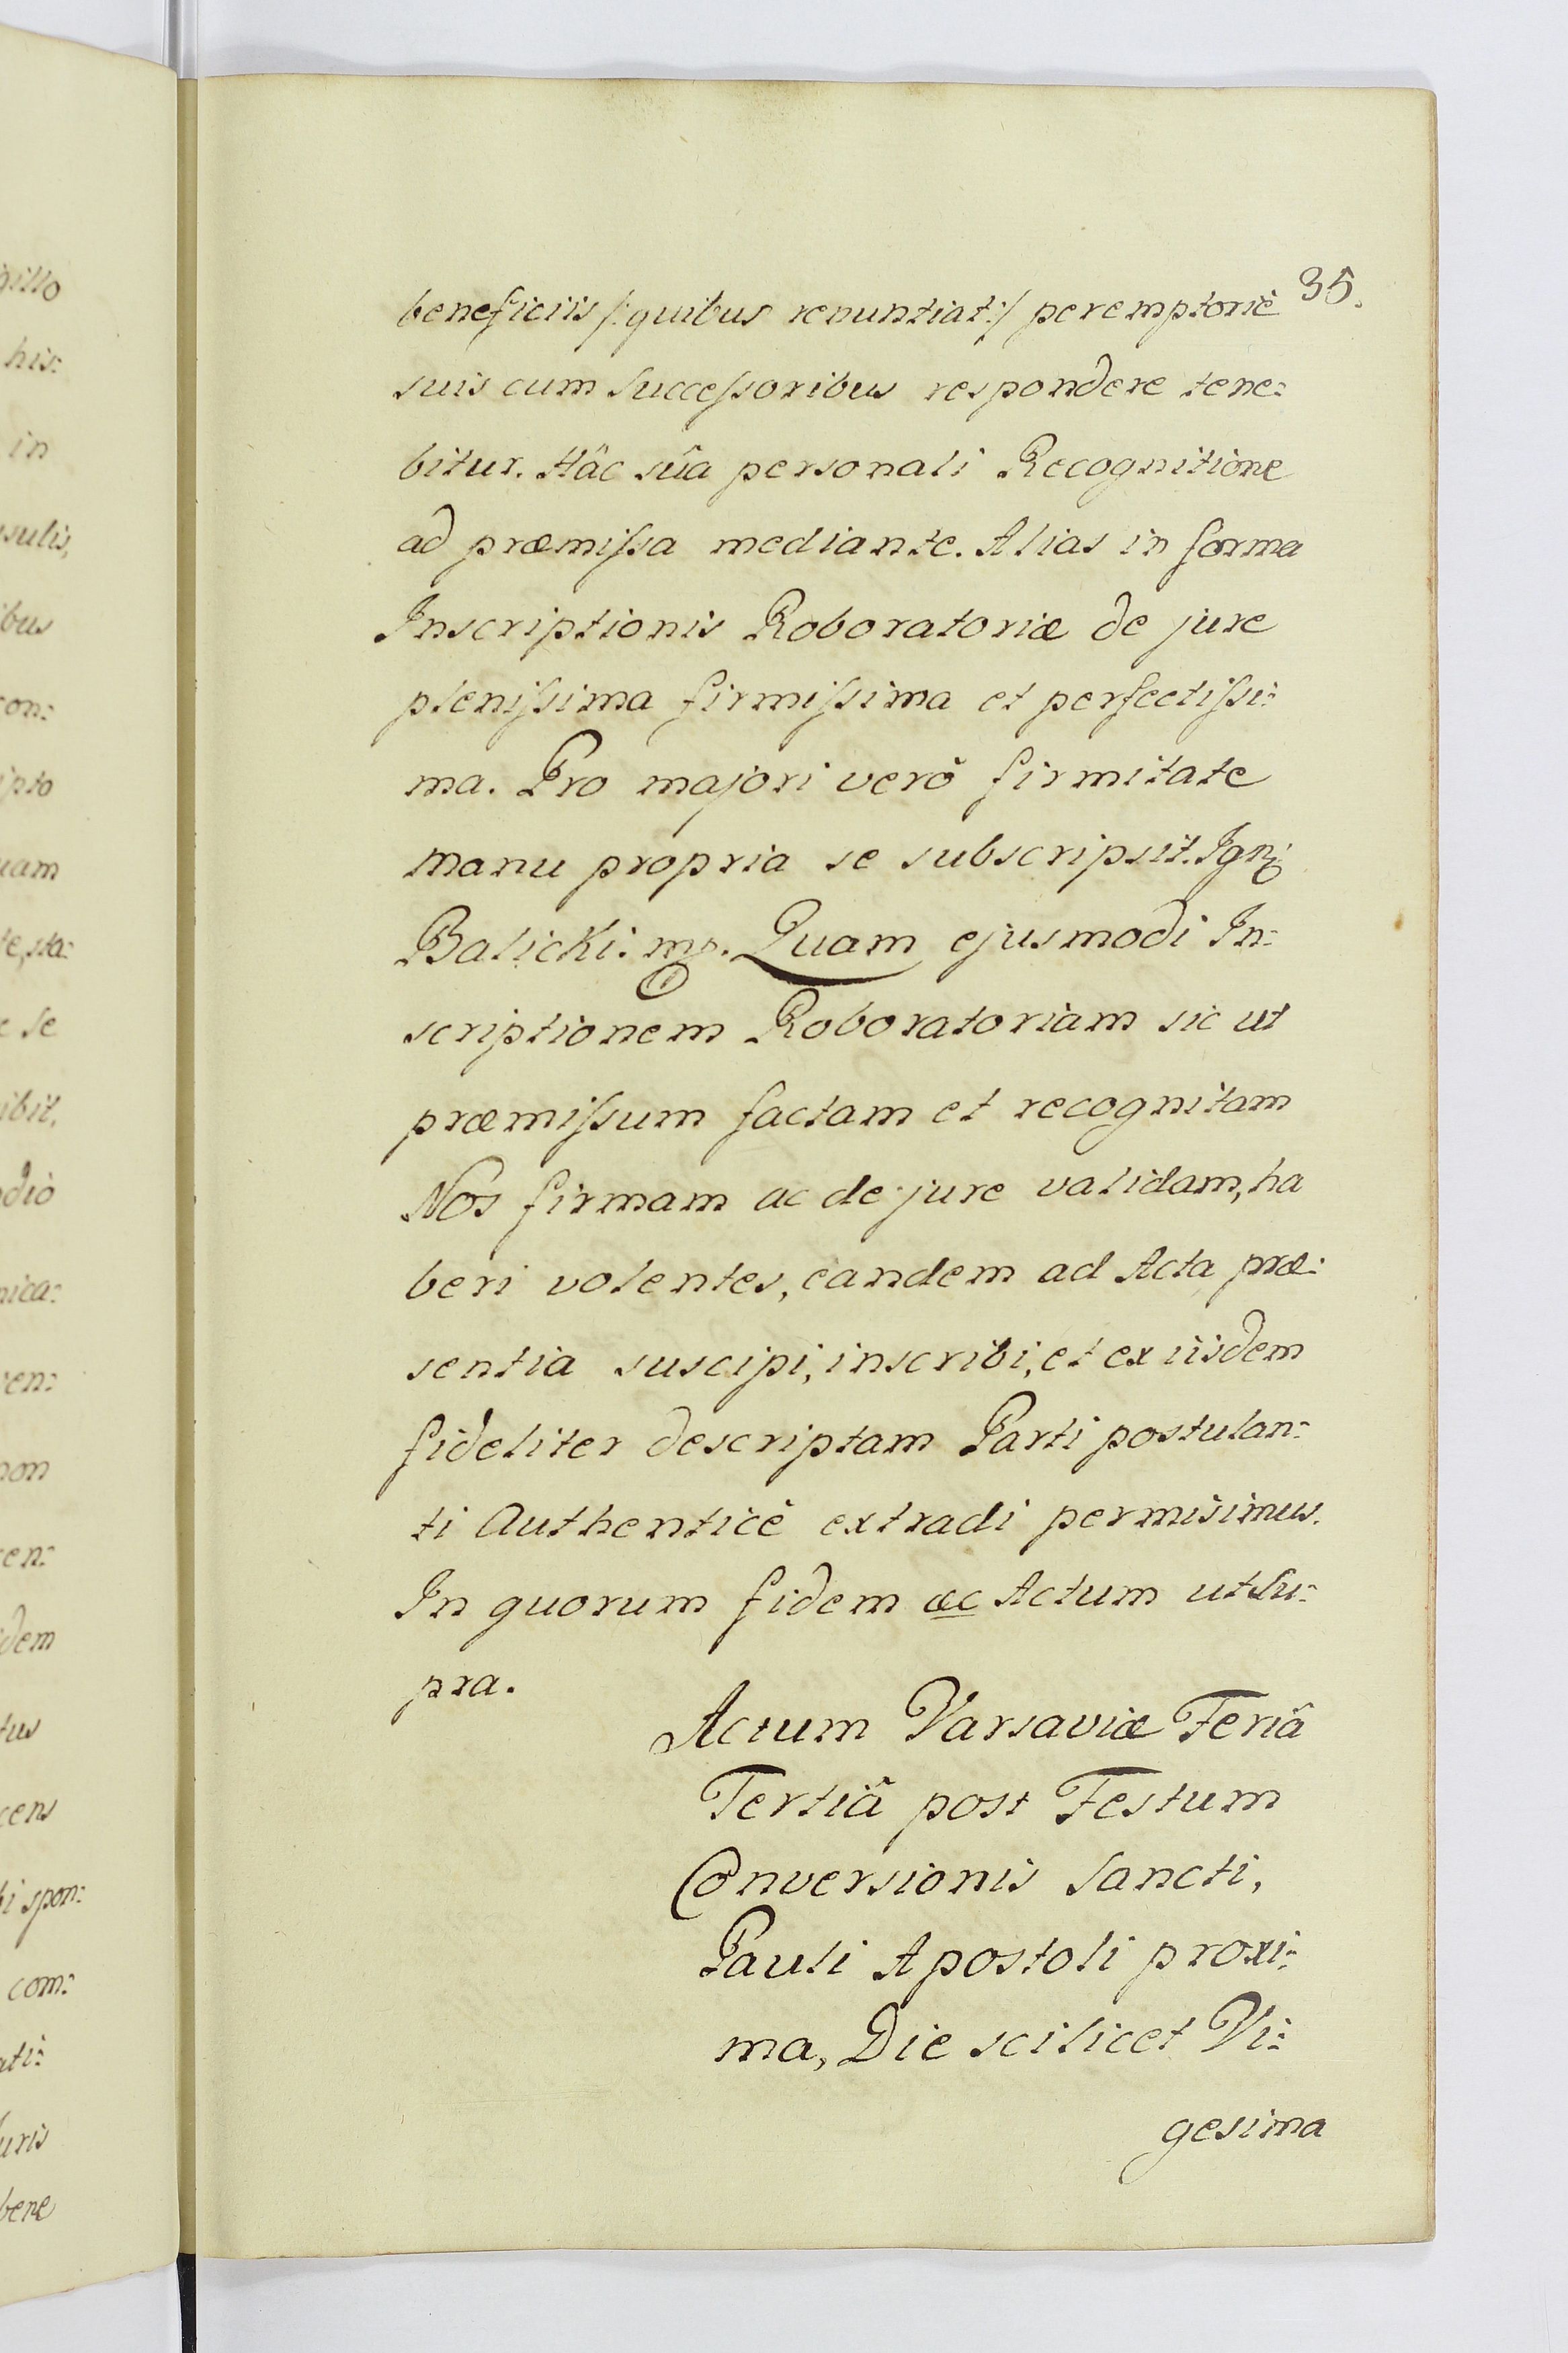 35.
beneficiis /:quibus renuntiat:/ peremptoriè
suis cum Successoribus respondere tene:
bitur. Hâc suâ personali Recognitione
ad præmissa mediante. Alias in forma
Inscriptionis Roboratoriæ de jure
plenissima firmissima et perfectissi:
ma. Pro majori verò firmitate
manu propria se subscripsit. Ign:
Balicki. mp. Quam ejusmodi In:
scriptionem Roboratoriam sic ut
præmissum factam et recognitam
Nos firmam ac de jure validam, ha
beri volentes, eandem ad Acta præ:
sentia suscipi, inscribi, et ex iisdem
fideliter descriptam Parti postulan:
ti Authenticè extradi permisimus.
In quorum fidem &c Actum ut Su:
pra.
Actum Varsaviæ Feriâ
Tertiâ post Festum
Conversionis Sancti,
Pauli Apostoli proxi:
ma, Die scilicet Vi:
gesima